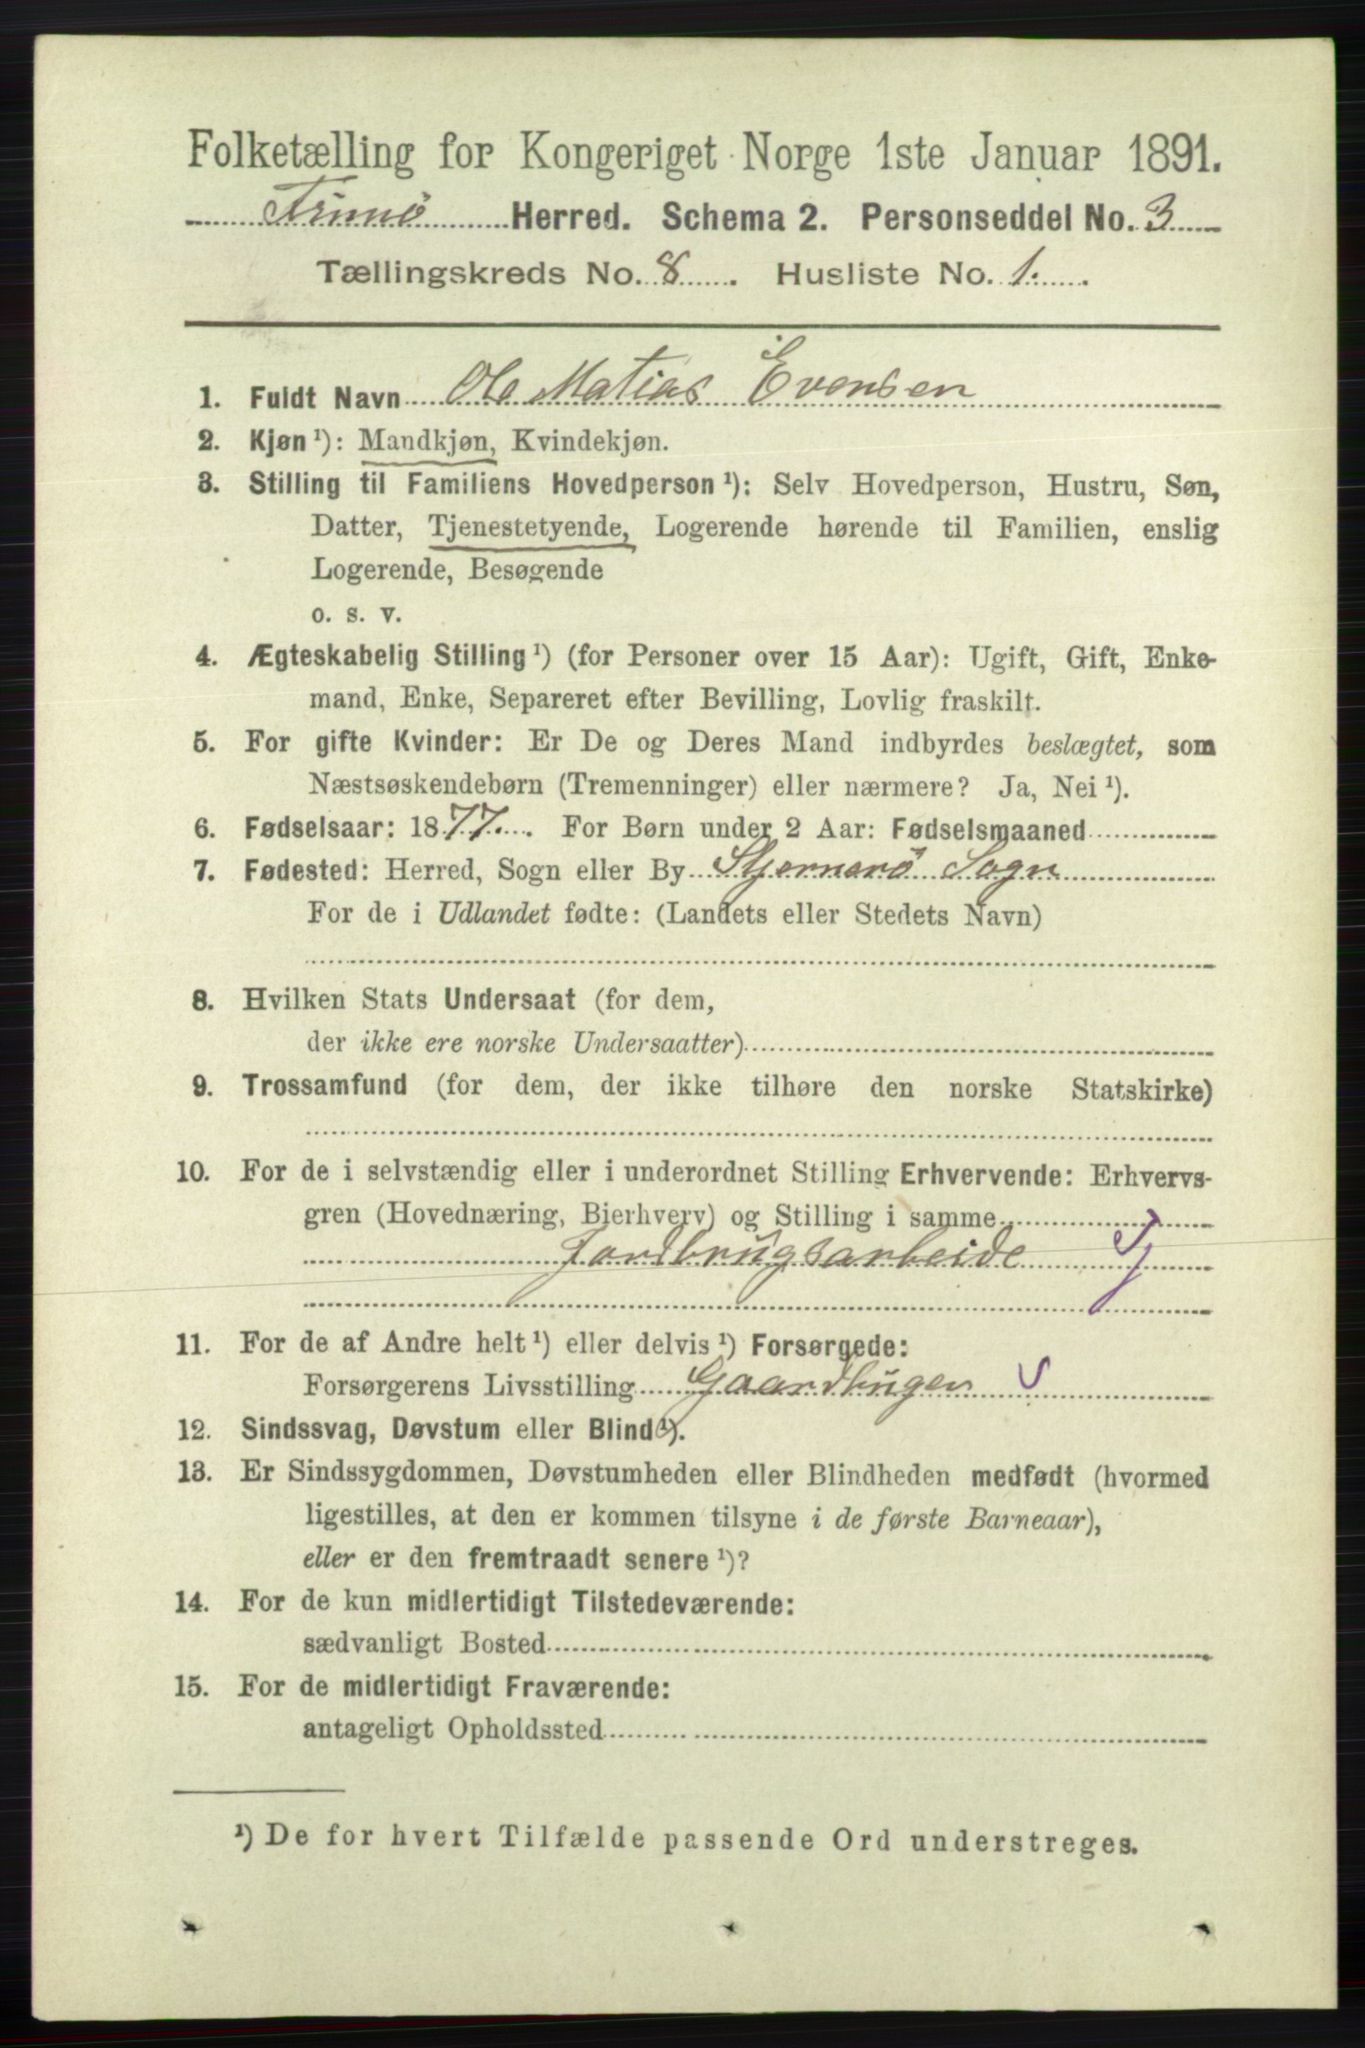 Folketælling for Kongeriget Norge 1ste Januar 1891.
Finnö Herred. Schema 2. Personseddel No. 3
Tællingskreds No. 8. Husliste No. 1.
1. Fuldt Navn Ole Matias Evensen
2. Kjøn ¹): Mandkjøn, Kvindekjøn.
3. Stilling til Familiens Hovedperson ¹): Selv Hovedperson, Hustru, Søn,
Datter, Tjenestetyende, Logerende hørende til Familien, enslig
Logerende, Besøgende
o. s. v.
4. Ægteskabelig Stilling ¹) (for Personer over 15 Aar): Ugift, Gift, Enke-
mand, Enke, Separeret efter Bevilling, Lovlig fraskilt.
5. For gifte Kvinder: Er De og Deres Mand indbyrdes beslægtet, som
Næstsøskendebørn (Tremenninger) eller nærmere? Ja, Nei ¹).
6. Fødselsaar: 1877. For Børn under 2 Aar: Fødselsmaaned
7. Fødested: Herred, Sogn eller By Stjernerö Sogn
For de i Udlandet fødte: (Landets eller Stedets Navn)
8. Hvilken Stats Undersaat (for dem,
der ikke ere norske Undersaatter)
9. Trossamfund (for dem, der ikke tilhøre den norske Statskirke)
10. For de i selvstændig eller i underordnet Stilling Erhvervende: Erhvervs-
gren (Hovednæring, Bierhverv) og Stilling i samme
Jordbrugsarbeide Tj
11. For de af Andre helt ¹) eller delvis ¹) Forsørgede:
Forsørgerens Livsstilling Gaardbruger S
12. Sindssvag, Døvstum eller Blind ¹).
13. Er Sindssygdommen, Døvstumheden eller Blindheden medfødt (hvormed
ligestilles, at den er kommen tilsyne i de første Barneaar),
eller er den fremtraadt senere ¹)?
14. For de kun midlertidigt Tilstedeværende:
sædvanligt Bosted
15. For de midlertidigt Fraværende:
antageligt Opholdssted
¹) De for hvert Tilfælde passende Ord understreges.